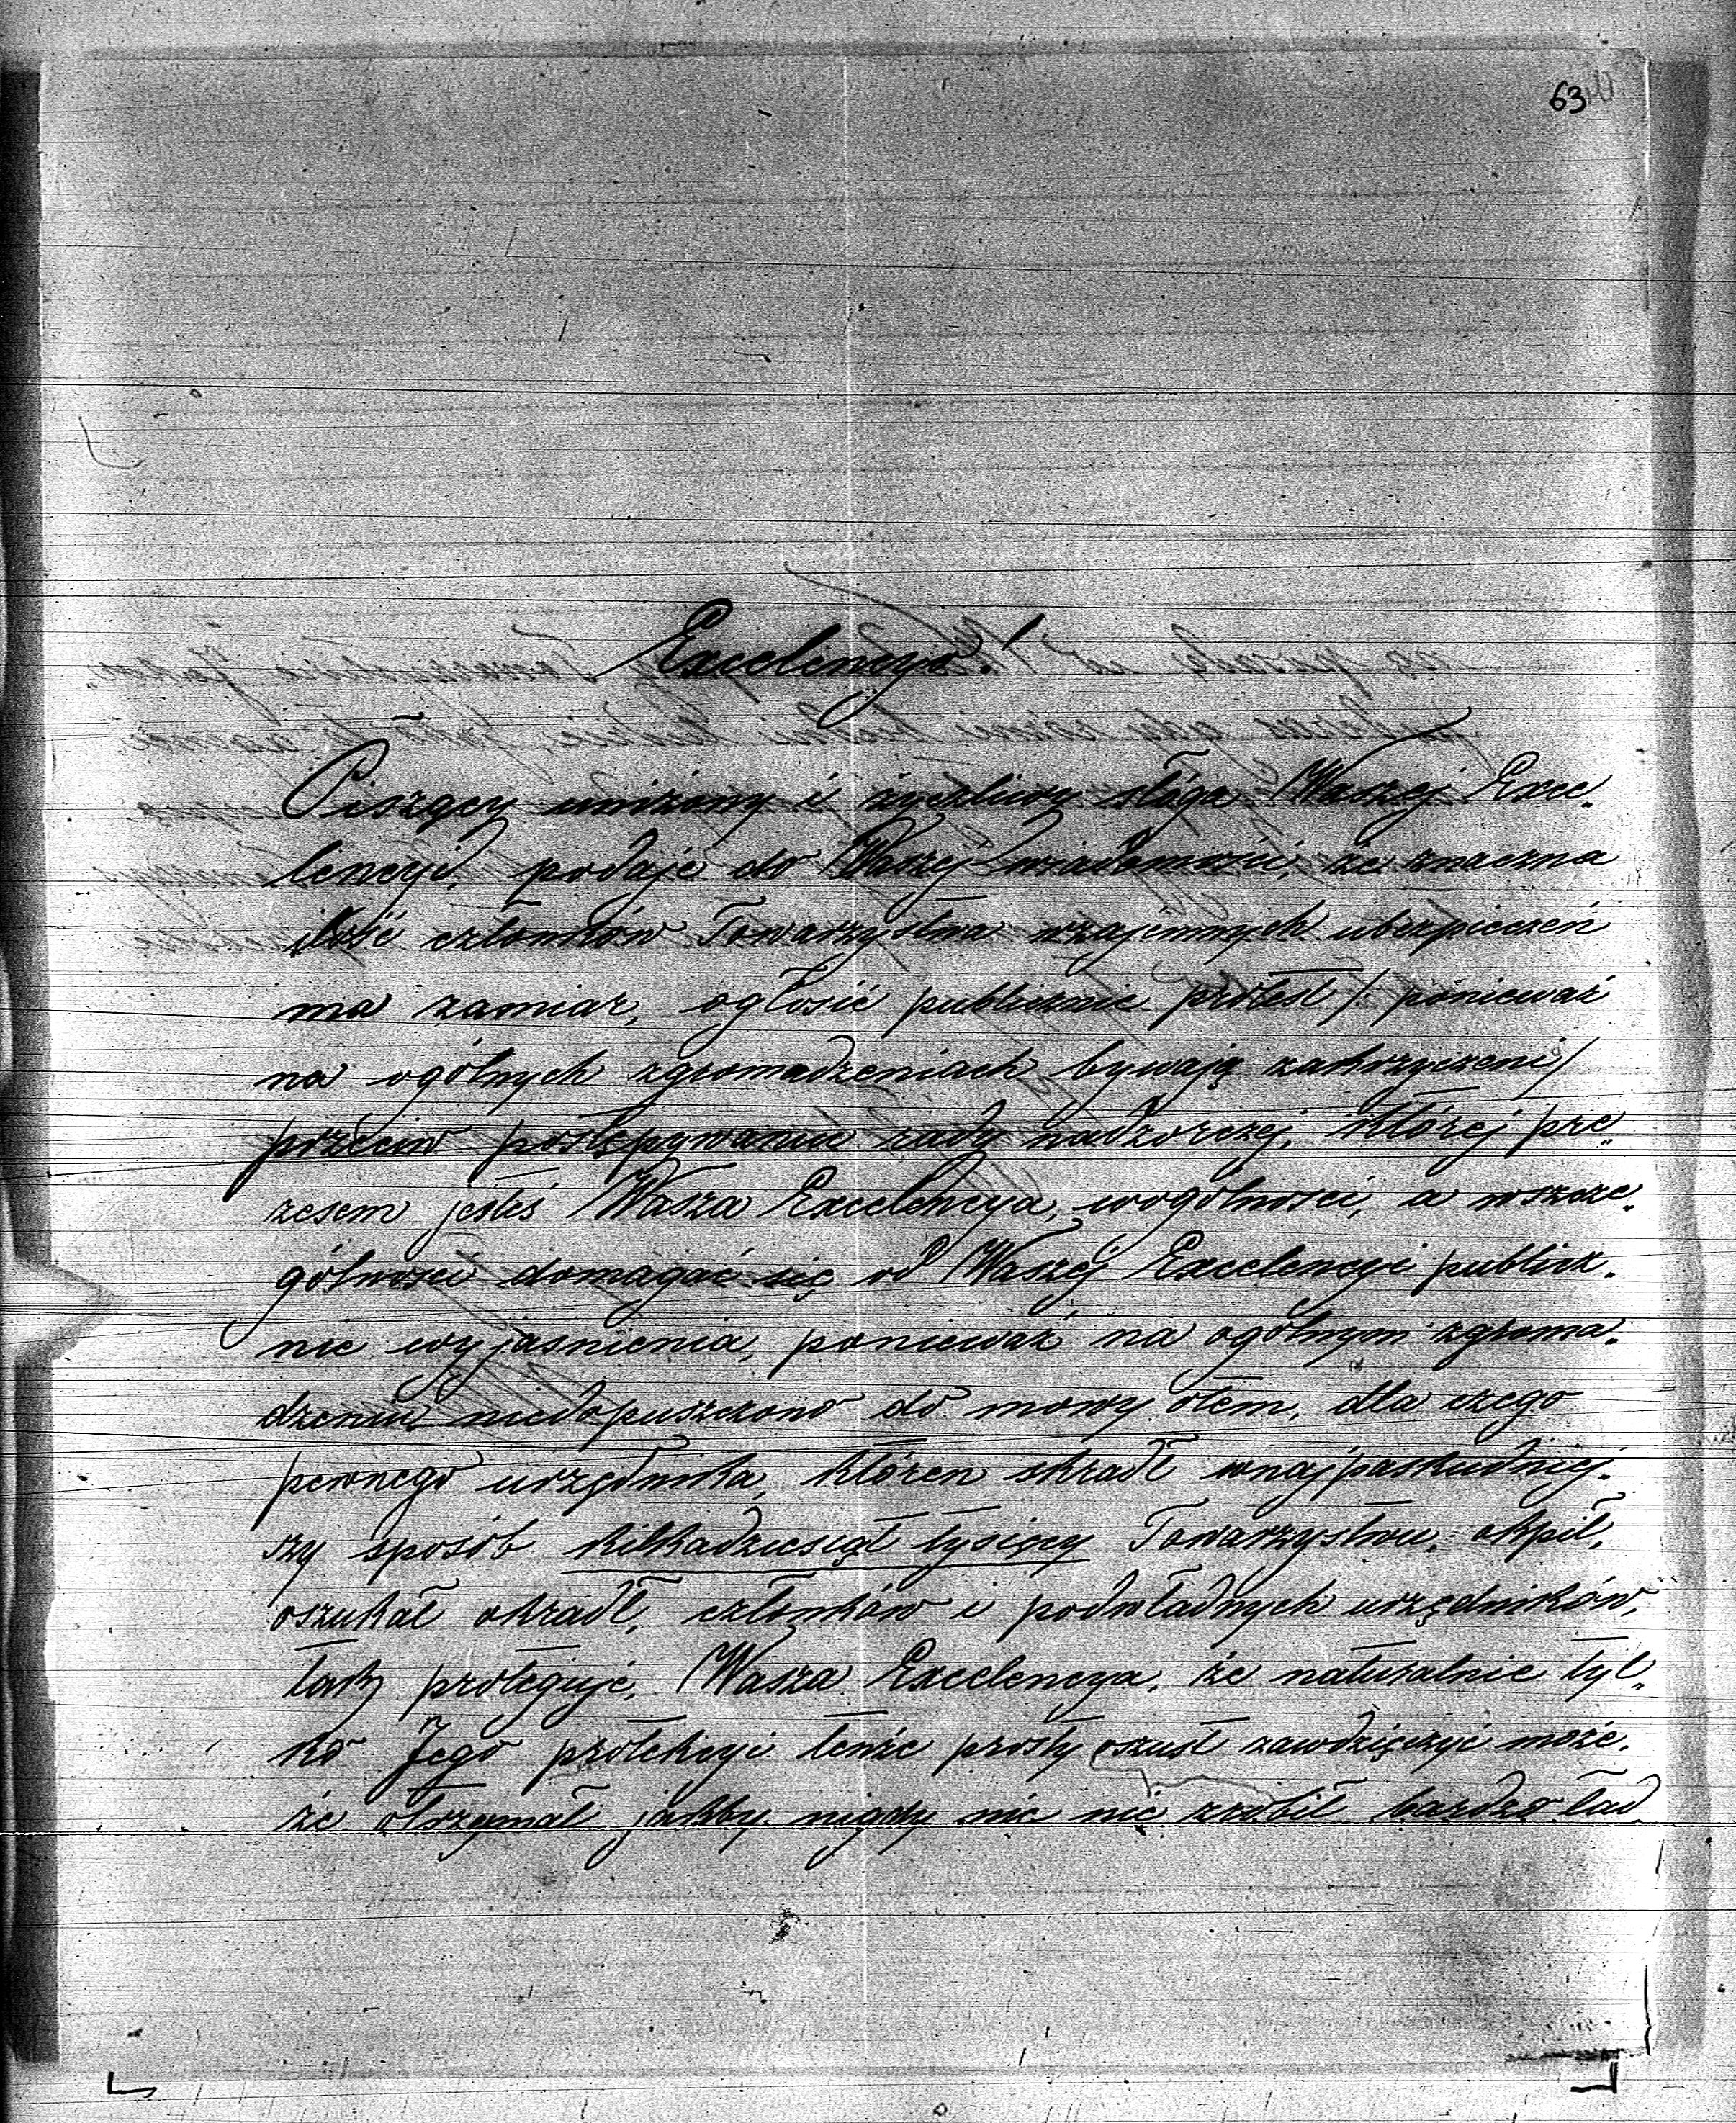 63
Excelencyo!
Piszący uniżony i życzliwy sługa Waszej Exce„
lencyi, podaje do Waszej wiadomości, że znaczna
ilość członków Towarzystwa wzajemnych ubezpieczeń
ma zamiar, ogłosić publicznie protest / ponieważ
na ogólnych zgromadzeniach bywają zakrzyczeni /
przeciw postępywaniu rady nadzorczej, której pre„
zesem jesteś Wasza Excelencya, wogólności, a wszcze„
gólności domagać się od Waszej Excelencyi publicz„
nie wyjaśnienia, ponieważ na ogólnym zgroma„
dzeniu niedopuszczono do mowy otem, dla czego
pewnego urzędnika, któren skradł wnajpaskudniej„
szy sposób kilkadziesiąt tysięcy Towarzystwu, okpił,
oszukał okradł, członków i podwładnych urzędników,
tak proteguje, Wasza Excelencya, że naturalnie tyl„
ko Jego protekcyi tenże prosty oszust zawdzięczyć może,
że otrzymał jakby nigdy nic nie zrobił bardzo ład